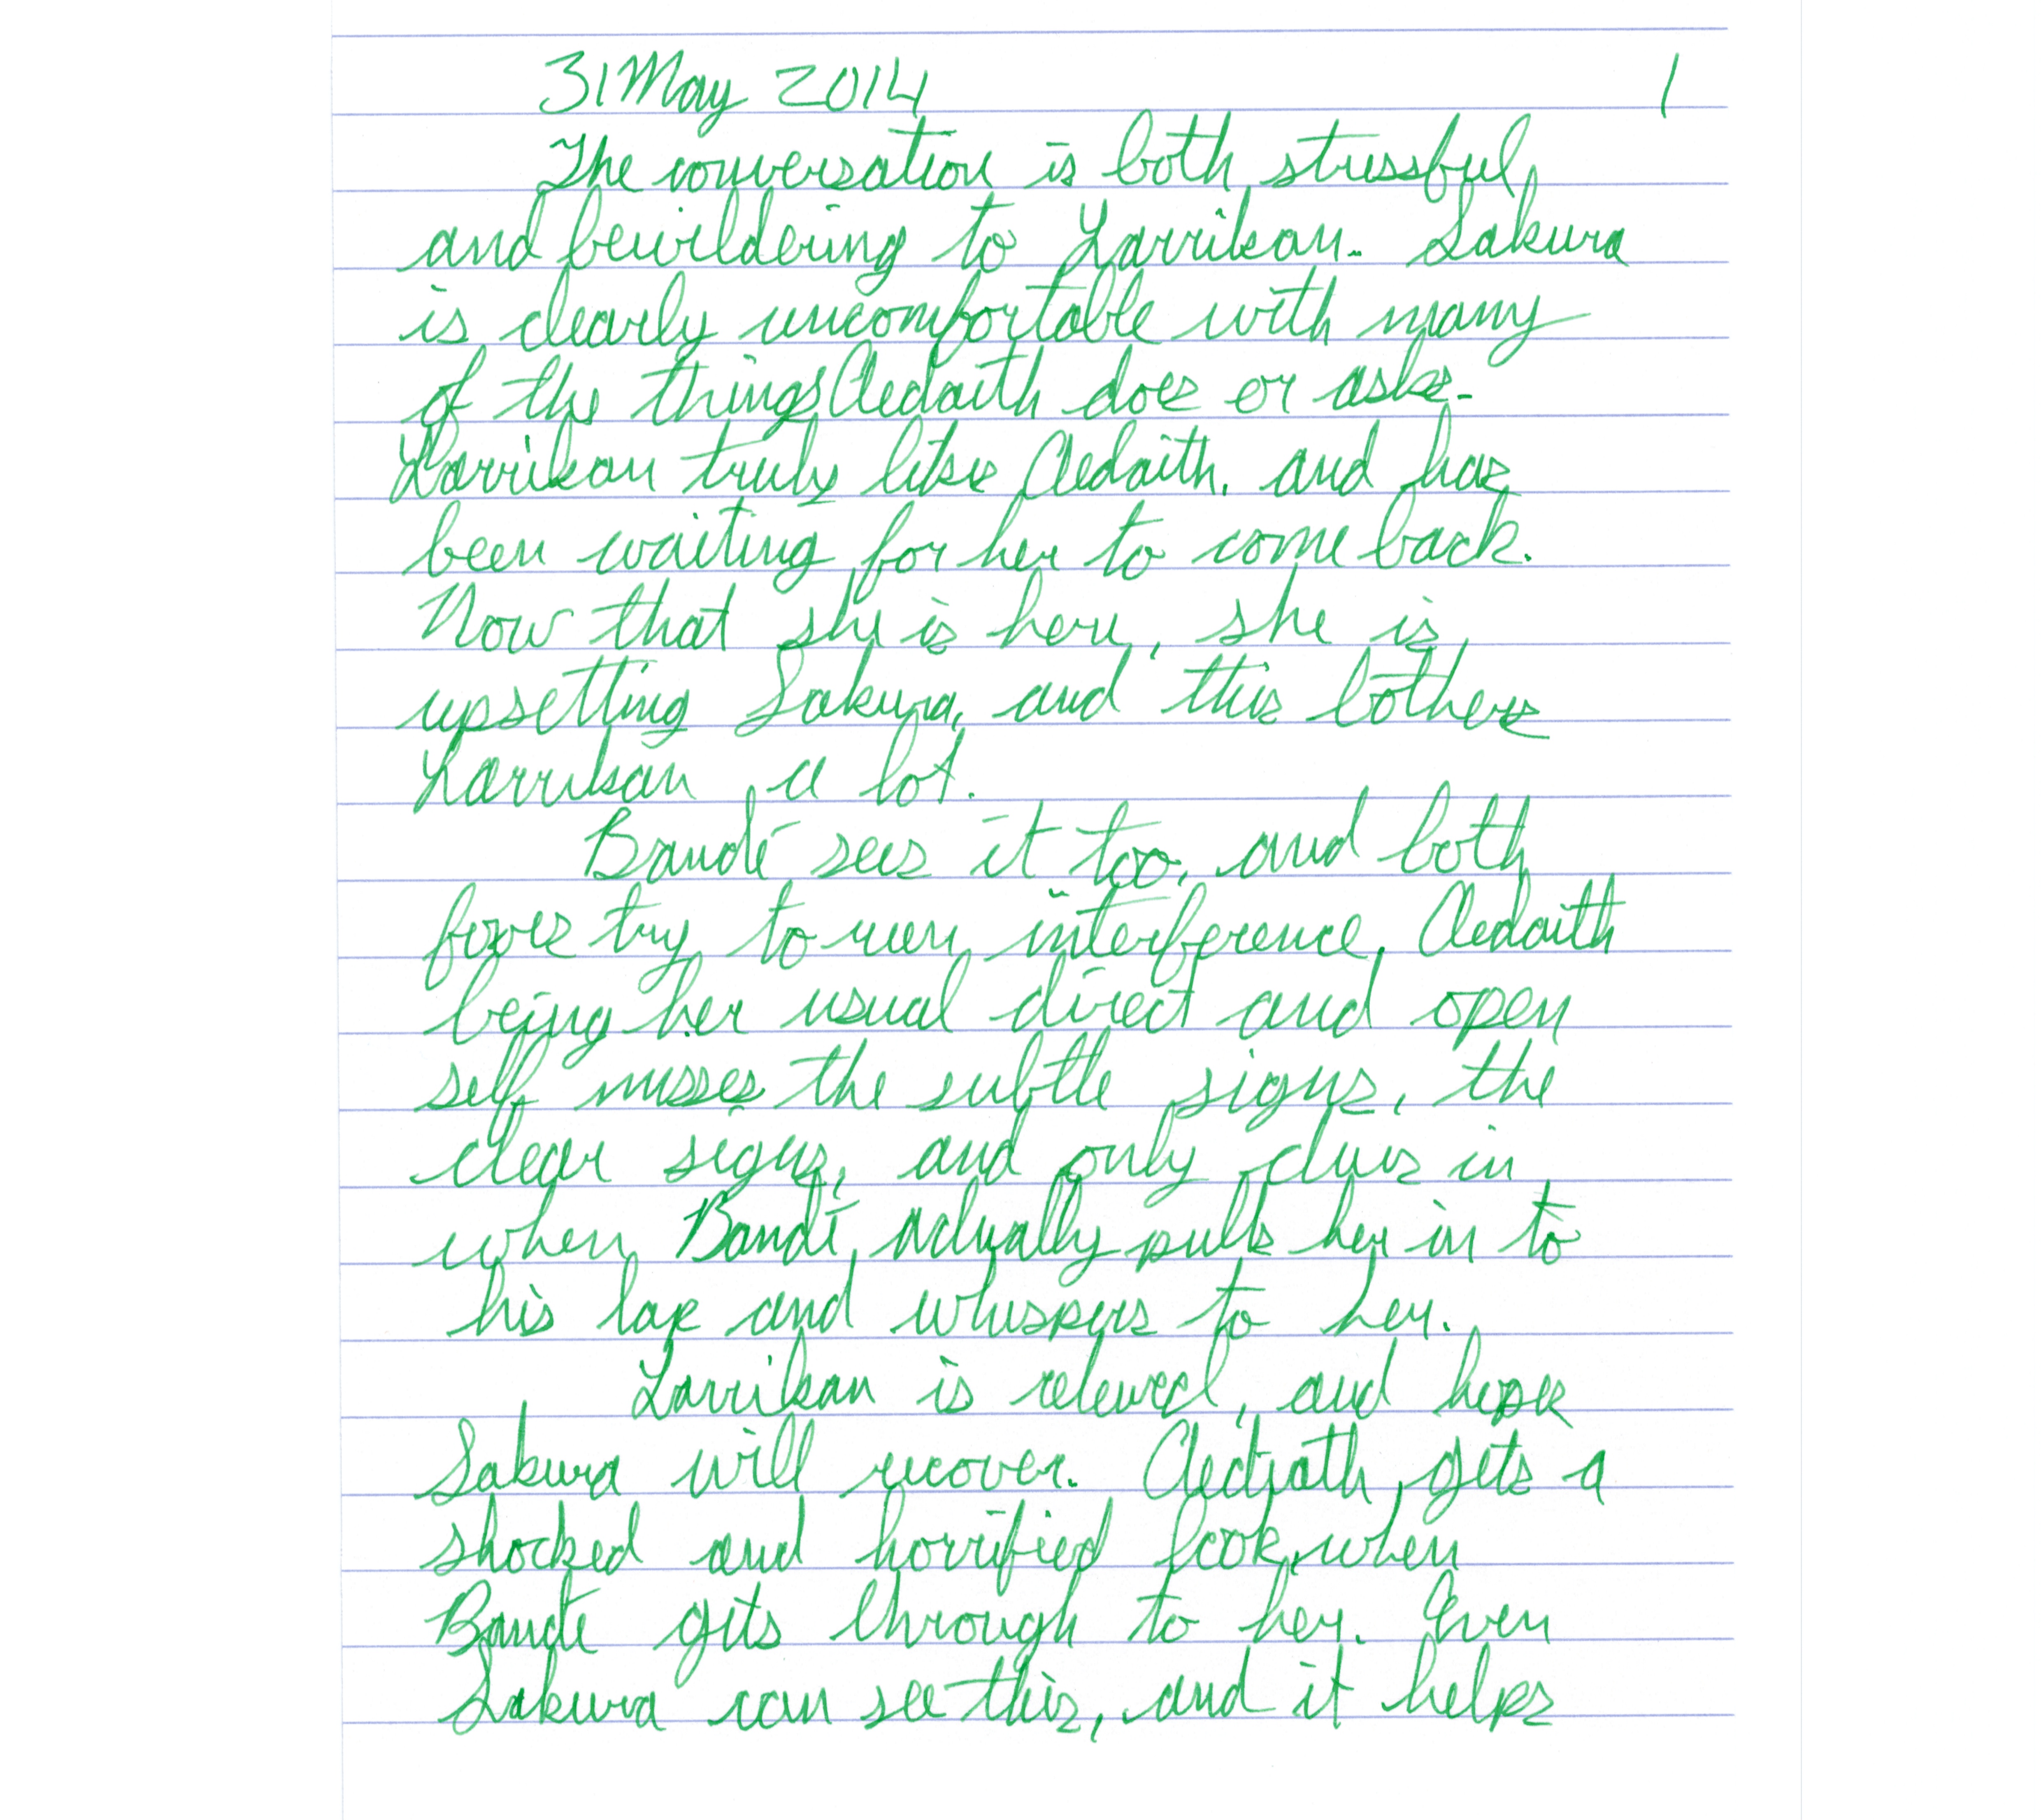 31 May 2014 1
The conversation is both stressful
and bewildering to Larrikan. Sakura
is clearly uncomfortable with many
of the things Aedaith does or asks.
Larrikan truly likes Aedaith, and has
been waiting for her to come back.
Now that she is here, she is
upsetting Sakura, and this bothers
Larrikan a lot.
Bandé sees it too, and both
foxes try to run interference. Aedaith
being her usual direct and open
self misses the subtle signs, the
clear signs, and only clues in
when Bandé actually pulls her in to
his lap and whispers to her.
Larrikan is relieved, and hopes
Sakura will recover. Aedaith gets a
shocked and horrified look when
Bandé gets through to her. Even
Sakura can see this, and it helps